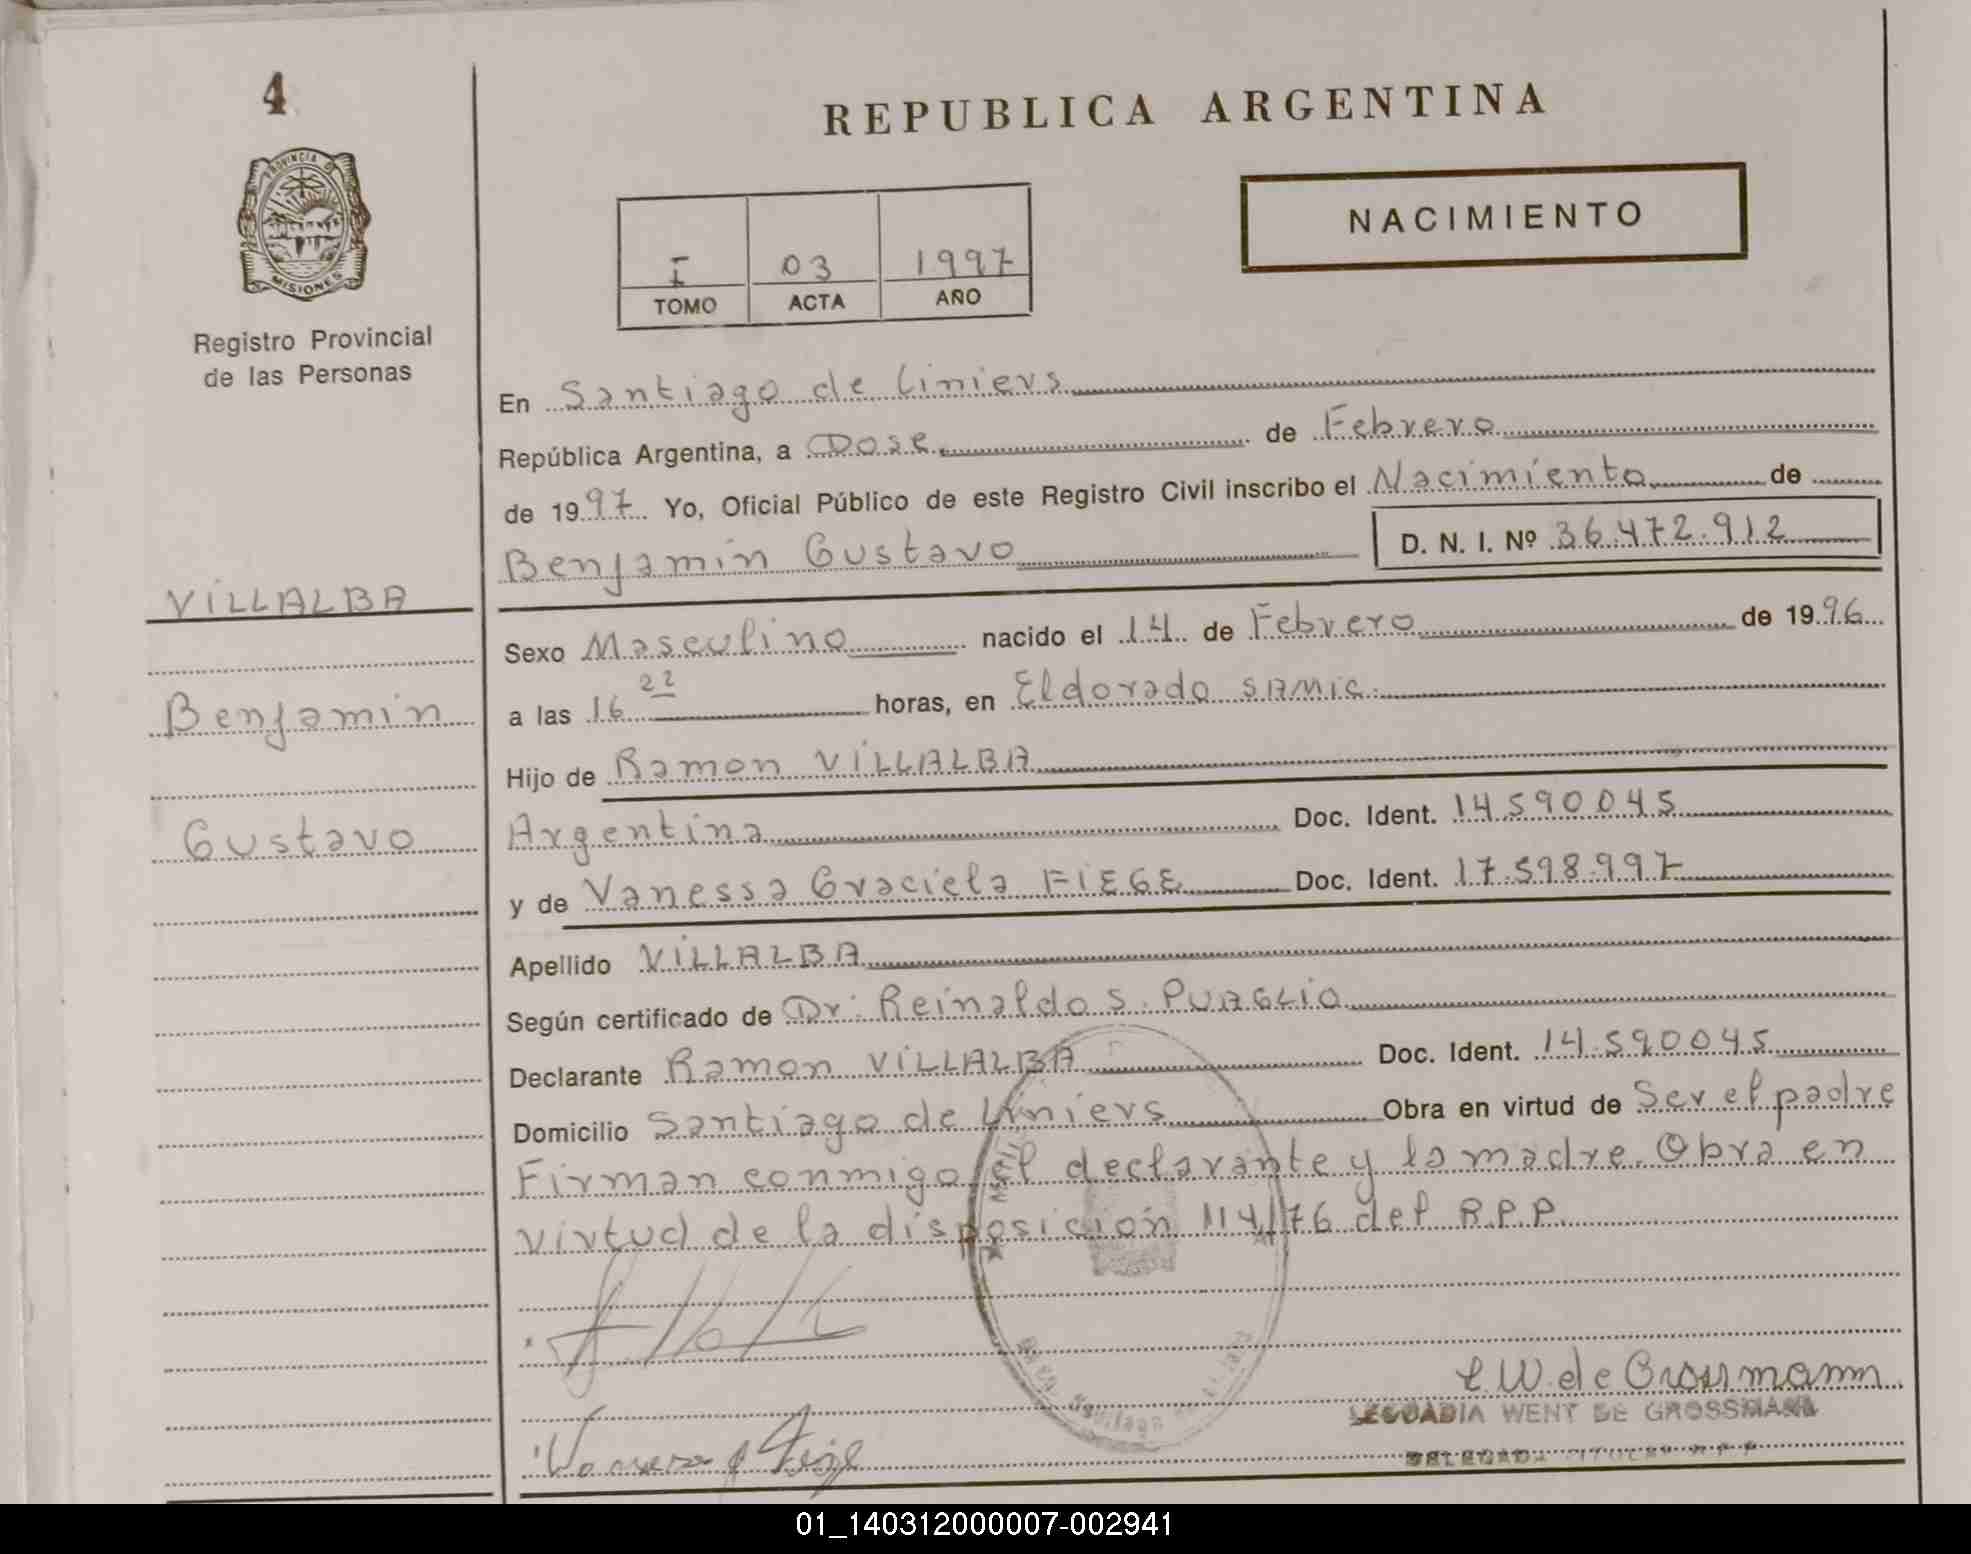 4
REPUBLICA ARGENTINA
PROVINCIA DE
MISIONES
NACIMIENTO
I 03 1997
TOMO ACTA AÑO
Registro Provincial
de las Personas
En Santiago de Liniers
República Argentina, a Dose de Febrero
de 1997 Yo, Oficial Público de este Registro Civil inscribo el Nacimiento de
Benjamin Gustavo D. N. I. Nº 36.472.912
VILLALBA
Benjamin
Gustavo
Sexo Masculino nacido el 14 de Febrero de 1996
a las 16 22 horas, en Eldorado SAMIC.
Hijo de Ramon VILLALBA
Argentina Doc. Ident. 14.590045
y de Vanessa Graciela FIEGE Doc. Ident. 17.598.997
Apellido VILLALBA
Según certificado de Dr: Reinaldo S. PUAGLIO
Declarante Ramon VILLALBA Doc. Ident. 14.590045
Domicilio Santiago de Liniers Obra en virtud de Ser el padre
Firman conmigo el declarante y la madre. Obra en
virtud de la disposición 114/76 del R.P.P.
L W. de Grossmann
LEOCADIA WENT DE GROSSMANN
DELEGADA TITULAR R.P.P.
01_140312000007-002941